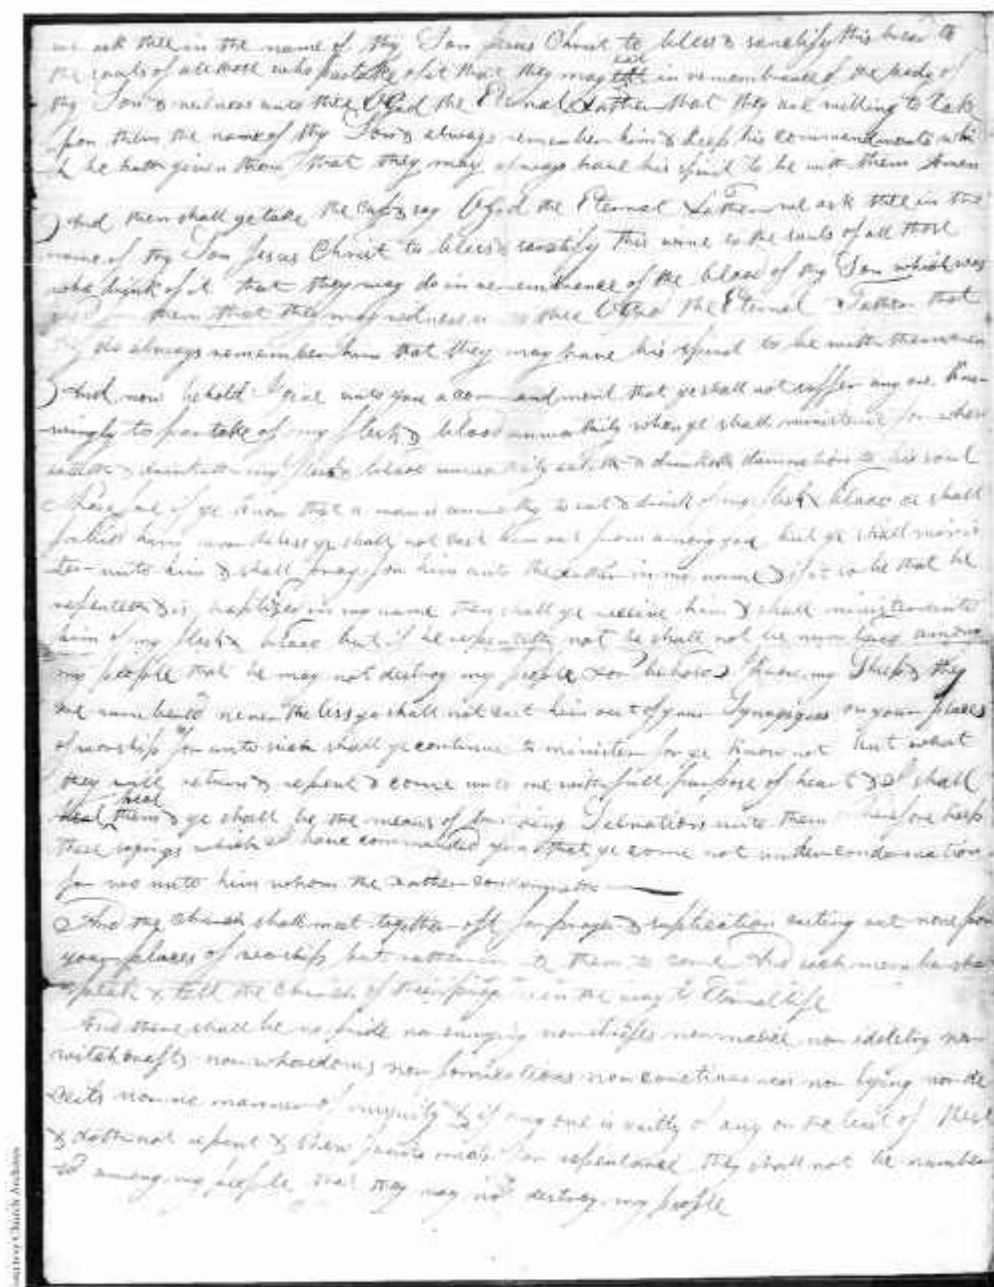 we ask thee in the name of thy Son Jesus Christ to bless & sanctify this bread to
the souls of all those who partake of it that they may eat in remembrance of the body of
thy Son & witness unto thee O God the Eternal Father that they are willing to take
upon them the name of thy Son & always remember him & keep his commandments whi
ch he hath given them that they may always have his spirit to be with them Amen
And then shall ye take the cup & say O God the Eternal Father we ask thee in the
name of thy Son Jesus Christ to bless & sanctify this wine to the souls of all those
who drink of it that they may do in remembrance of the blood of thy Son which was
them that they may witness thee O God the Eternal Father that
do always remember him that they may have his spirit to be with them amen
And now behold I give unto you a commandment that ye shall not suffer any one know
ingly to partake of my flesh & blood unworthily when ye shall minister it for whoso
eateth & drinketh my flesh & blood unworthily eateth & drinketh damnation to his soul
Therefore if ye know that a man is unworthy to eat & drink of my flesh & blood ye shall
forbid him nevertheless ye shall not cast him out from among you but ye shall minis
ter unto him & shall pray for him unto the Father in my name & if it so be that he
repenteth & is baptized in my name then shall ye receive him & shall minister unto
him of my flesh & blood but if he repenteth not he shall not be numbered among
my people that he may not destroy my people For behold I know my Sheep & they
are numbered nevertheless ye shall not cast him out of your Synagogues or your places
of worship for unto such shall ye continue to minister for ye know not but what
they will return & repent & come unto me with full purpose of heart & I shall
heal
them & ye shall be the means of bringing Salvation unto them therefore keep
these sayings which I have commanded you that ye come not under condemnation
for wo unto him whom the Father condemneth
And the church shall meet together oft for prayer & suplication casting out none from
your places of worship but rather them to come And each member shall
speak & tell the Church of their progress in the way to Eternal life
And there shall be no pride nor envying nor strifes nor malice nor idolitry nor
witchcrafts nor whoredoms nor fornications nor covetiousness nor lying nor de
ceits nor no manner of iniquity & if any one is guilty of any or the least of these
& doth not repent & shew fruits meet for repentance they shall not be number
ed among my people that they may not destroy my people